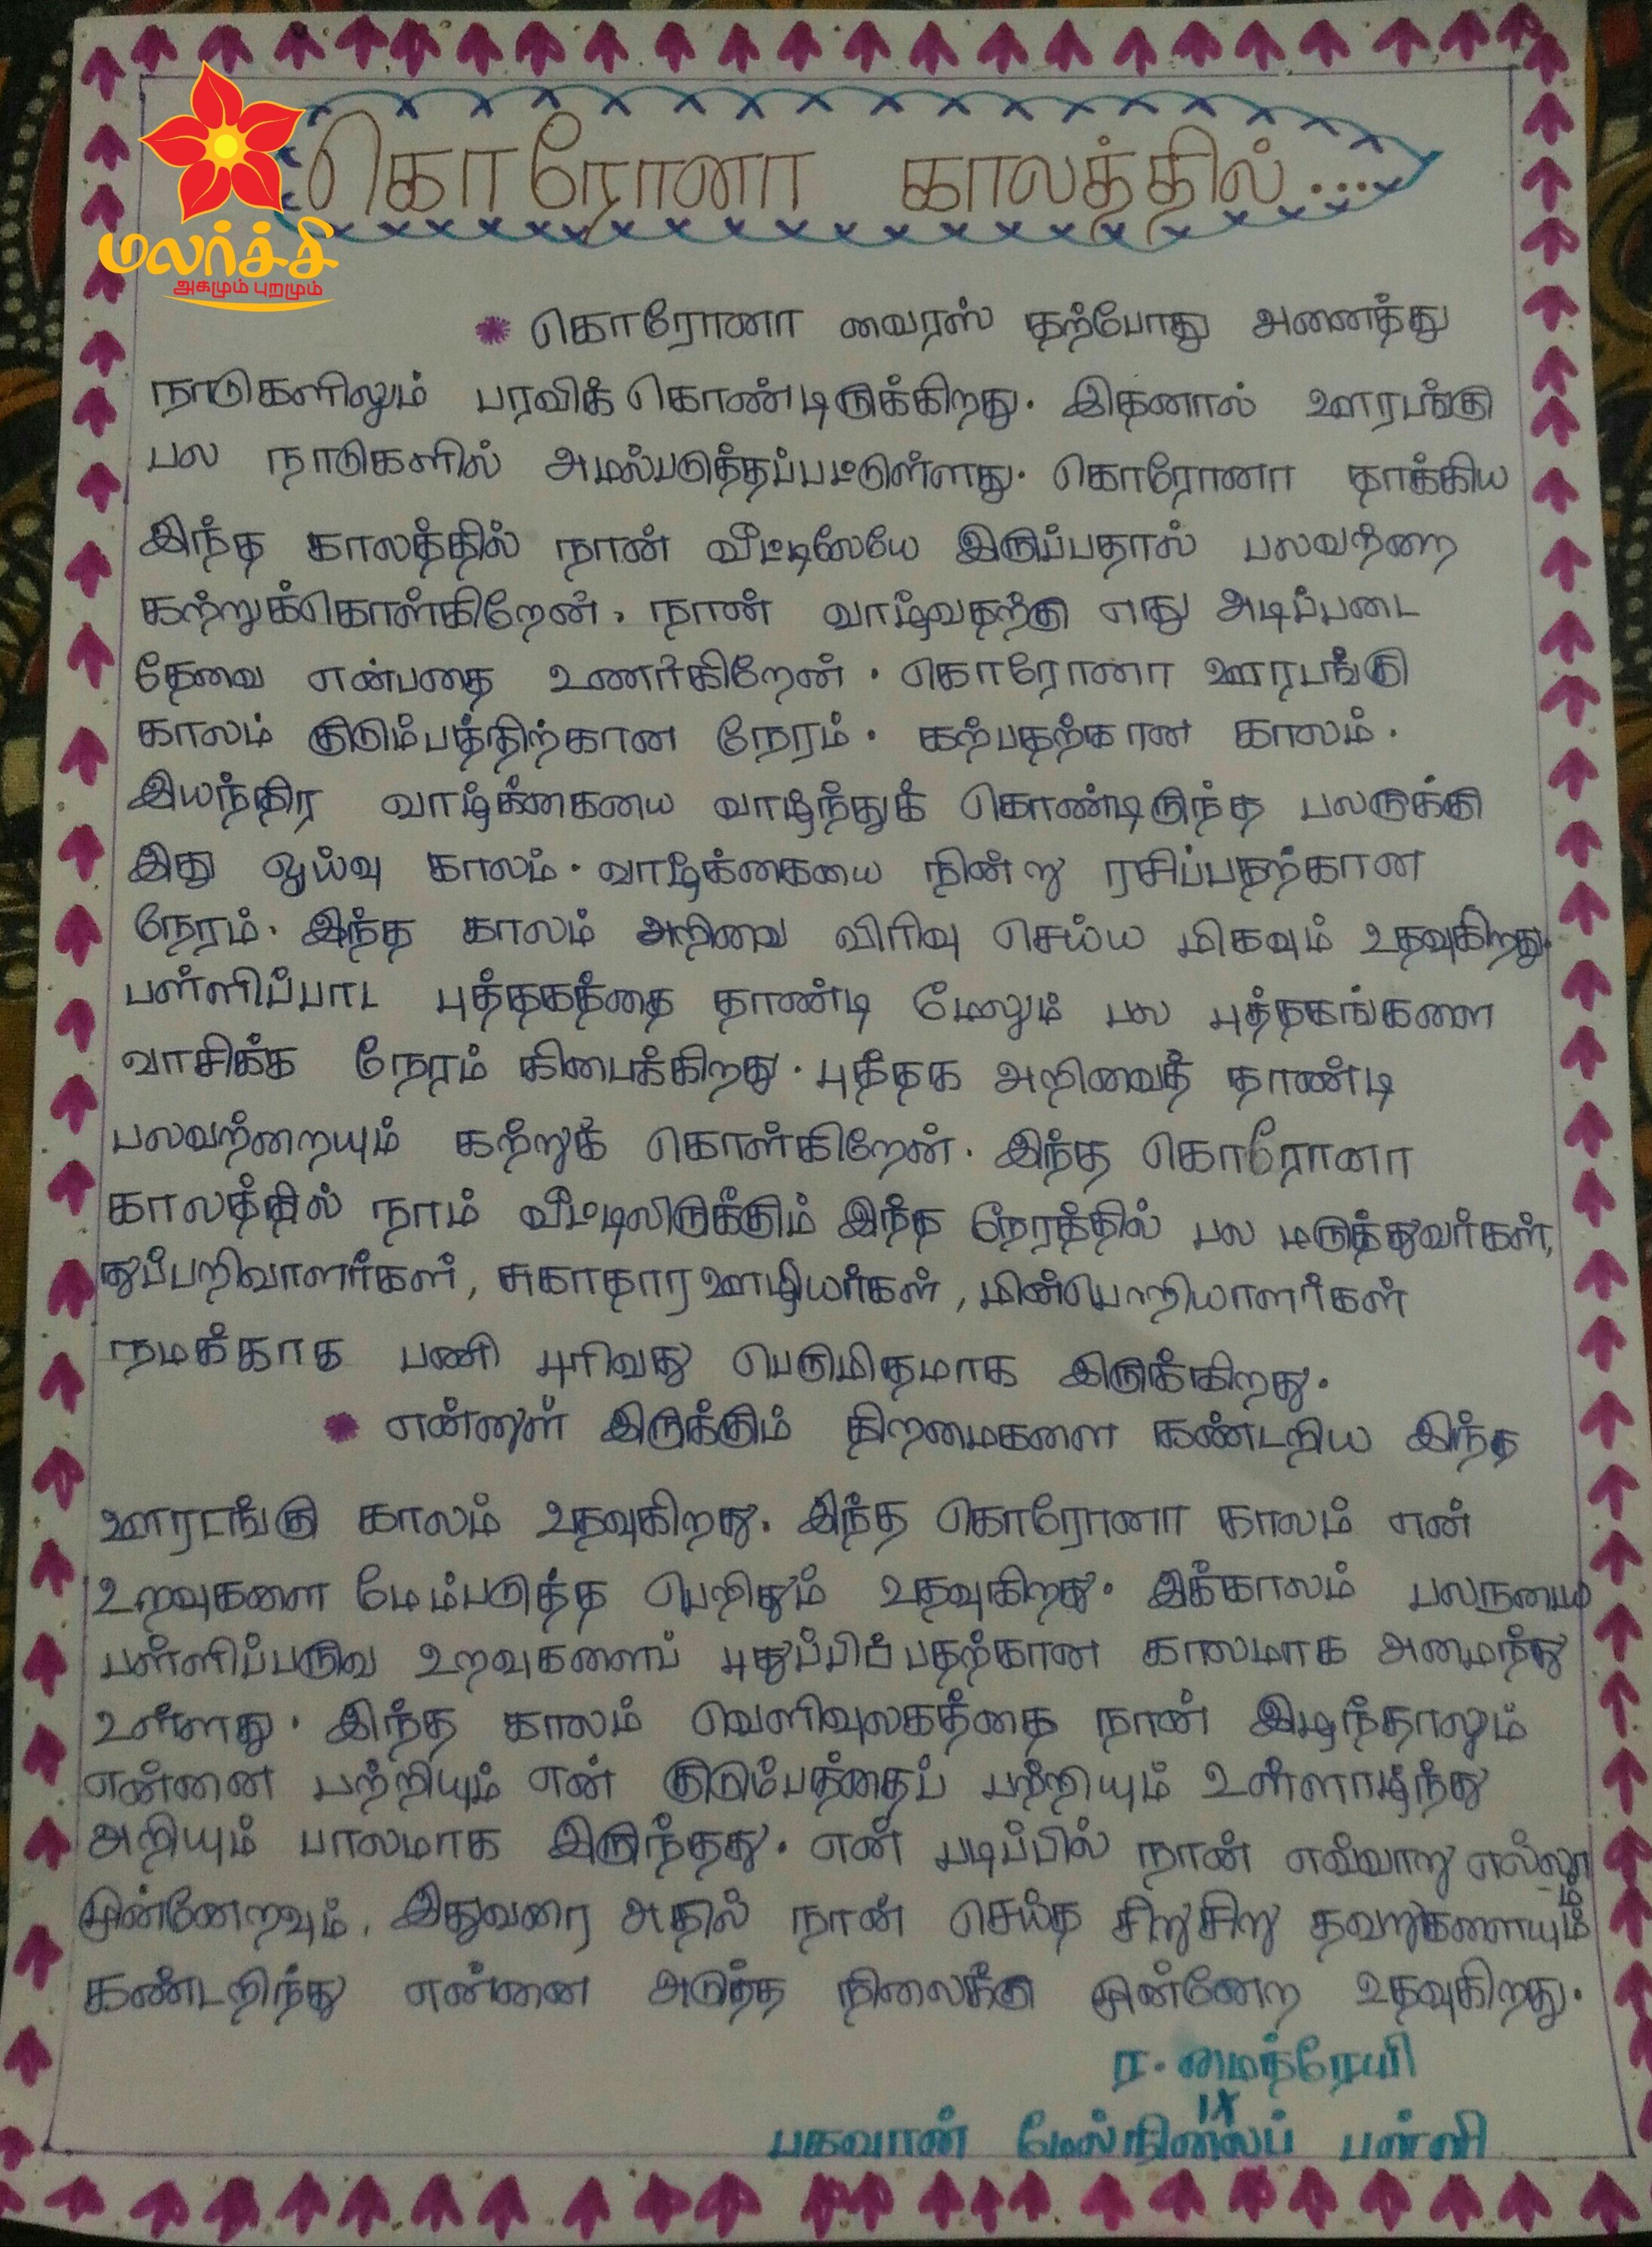 கொரோனா காலத்தில்...
மலர்ச்சி
அகமும் புறமும்
கொரோனா வைரஸ் தற்போது அனைத்து
நாடுகளிலும் பரவிக் கொண்டிருக்கிறது. இதனால் ஊரடங்கு
பல நாடுகளில் அமல்படுத்தப்பட்டுள்ளது. கொரோனா தாக்கிய
இந்த காலத்தில் நான் வீட்டிலேயே இருப்பதால் பலவற்றை
கற்றுக்கொள்கிறேன். நான் வாழ்வதற்கு எது அடிப்படை
தேவை என்பதை உணர்கிறேன். கொரோனா ஊரடங்கு
காலம் குடும்பத்திற்கான நேரம். கற்பதற்கான காலம்.
இயந்திர வாழ்க்கையை வாழ்ந்துக் கொண்டிருந்த பலருக்கு
இது ஓய்வு காலம். வாழ்க்கையை நின்று ரசிப்பதற்கான
நேரம். இந்த காலம் அறிவை விரிவு செய்ய மிகவும் உதவுகிறது.
பள்ளிப்பாட புத்தகத்தை தாண்டி மேலும் பல புத்தகங்களை
வாசிக்க நேரம் கிடைக்கிறது. புத்தக அறிவைத் தாண்டி
பலவற்றையும் கற்றுக் கொள்கிறேன். இந்த கொரோனா
காலத்தில் நாம் வீட்டிலிருக்கும் இந்த நேரத்தில் பல மருத்துவர்கள்,
துப்பறிவாளர்கள், சுகாதார ஊழியர்கள், மின்பொறியாளர்கள்
நமக்காக பணி புரிவது பெருமிதமாக இருக்கிறது.
என்னுள் இருக்கும் திறமைகளை கண்டறிய இந்த
ஊரடங்கு காலம் உதவுகிறது. இந்த கொரோனா காலம் என்
உறவுகளை மேம்படுத்த பெறிதும் உதவுகிறது. அக்காலம் பலருடைய
பள்ளிப்பருவ உறவுகளைப் புதுப்பிப்பதற்கான காலமாக அமைந்து
உள்ளது. இந்த காலம் வெளிவுலகத்தை நான் இழந்தாலும்
என்னை பற்றியும் என் குடும்பத்தைப் பற்றியும் உள்ளாழ்ந்து
அறியும் பாலமாக இருந்தது. என் படிப்பில் நான் எவ்வாறு எல்லாம்
முன்னேறவும், இதுவரை அதில் நான் செய்த சிறுசிறு தவறுகளையும்
கண்டறிந்து என்னை அடுத்த நிலைக்கு முன்னேற உதவுகிறது.
ர. மைத்ரேயி
IX
பகவான் மேல்நிலைப் பள்ளி